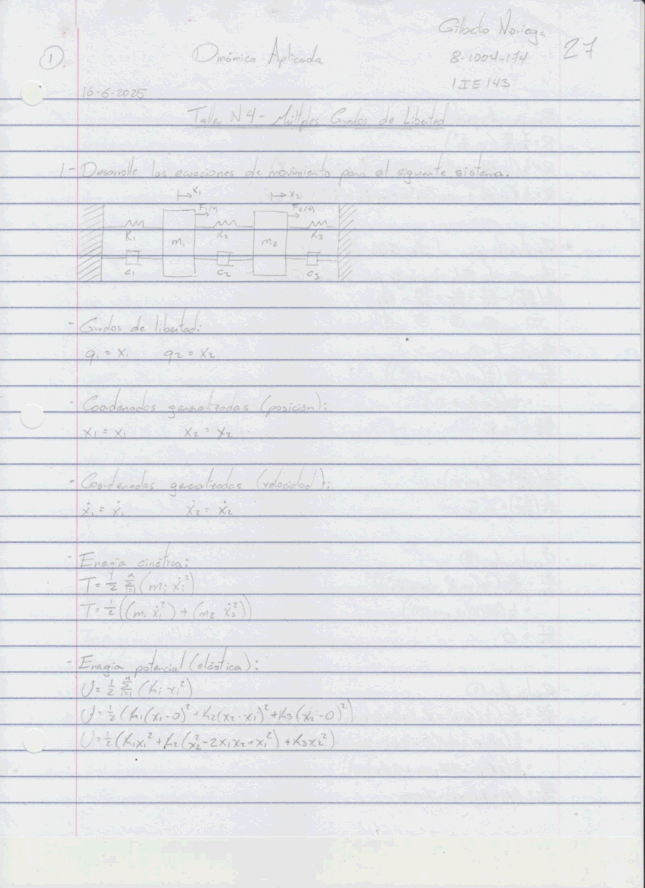 Gilberto Noriega
27
①
Dinámica Aplicada
8-1004-174
1IE143
16-6-2025
Taller N4 - Múltiples Grados de Libertad
1- Desarrolle las ecuaciones de movimiento para el siguiente sistema.
→x₁ →x₂
F₁(t) F₂(t)
K₁ K₂ K₃
m₁ m₂
c₁ c₂ c₃
- Grados de libertad:
q₁ = x₁ q₂ = x₂
- Coordenadas generalizadas (posición):
x₁ = x₁ x₂ = x₂
- Coordenadas generalizadas (velocidad):
ẋ₁ = ẋ₁ ẋ₂ = ẋ₂
- Energía cinética:
T = ½ Σ (mᵢ ẋᵢ²)
T = ½ ((m₁ ẋ₁²) + (m₂ ẋ₂²))
- Energía potencial (elástica):
U = ½ Σ (kᵢ · xᵢ²)
U = ½ (k₁(x₁-0)² + k₂(x₂-x₁)² + k₃(x₂-0)²)
U = ½ (k₁x₁² + k₂(x₂² - 2x₁x₂ + x₁²) + k₃x₂²)